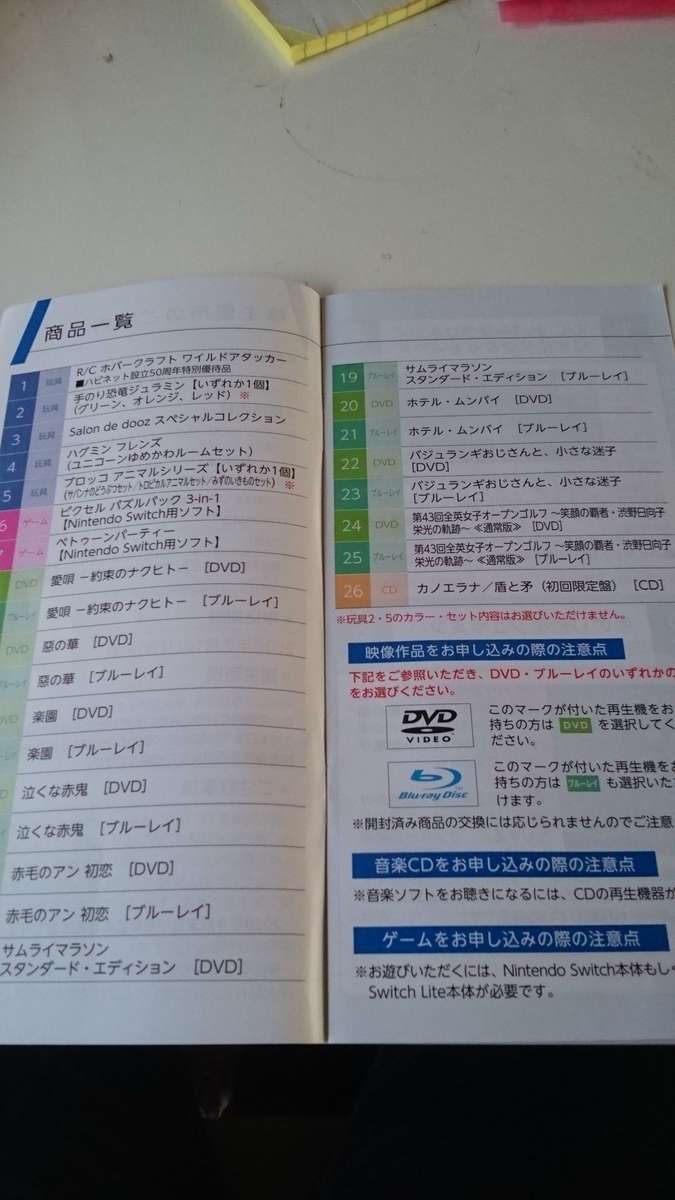 商品一覧
1 玩具 R/C ホバークラフト ワイルドアタッカー
■ハピネット設立50周年特別優待品
2 玩具 手のり恐竜ジュラミン【いずれか1個】
(グリーン、オレンジ、レッド) ※
3 玩具 Salon de dooz スペシャルコレクション
4 玩具 ハグミン フレンズ
(ユニコーンゆめかわルームセット)
5 玩具 ブロッコ アニマルシリーズ【いずれか1個】
(サバンナのどうぶつセット/トロピカルアニマルセット/みずのいきものセット) ※
6 ゲーム ピクセル パズルパック 3-in-1
【Nintendo Switch用ソフト】
ゲーム ベトゥーンパーティー
【Nintendo Switch用ソフト】
DVD 愛唄 ー約束のナクヒトー [DVD]
ブルーレイ 愛唄 ー約束のナクヒトー [ブルーレイ]
DVD 惡の華 [DVD]
ブルーレイ 惡の華 [ブルーレイ]
DVD 楽園 [DVD]
楽園 [ブルーレイ]
泣くな赤鬼 [DVD]
泣くな赤鬼 [ブルーレイ]
赤毛のアン 初恋 [DVD]
赤毛のアン 初恋 [ブルーレイ]
サムライマラソン
スタンダード・エディション [DVD]
19 ブルーレイ サムライマラソン
スタンダード・エディション [ブルーレイ]
20 DVD ホテル・ムンバイ [DVD]
21 ブルーレイ ホテル・ムンバイ [ブルーレイ]
22 DVD バジュランギおじさんと、小さな迷子
[DVD]
23 ブルーレイ バジュランギおじさんと、小さな迷子
[ブルーレイ]
24 DVD 第43回全英女子オープンゴルフ ~笑顔の覇者・渋野日向子
栄光の軌跡~ ≪通常版≫ [DVD]
25 ブルーレイ 第43回全英女子オープンゴルフ ~笑顔の覇者・渋野日向子
栄光の軌跡~ ≪通常版≫ [ブルーレイ]
26 CD カノエラナ/盾と矛(初回限定盤) [CD]
※玩具2・5のカラー・セット内容はお選びいただけません。
映像作品をお申し込みの際の注意点
下記をご参照いただき、DVD・ブルーレイのいずれかの
をお選びください。
DVD
VIDEO
このマークが付いた再生機をお
持ちの方は DVD を選択してく
ださい。
Blu-ray Disc
このマークが付いた再生機をお
持ちの方は ブルーレイ も選択いた
けます。
※開封済み商品の交換には応じられませんのでご注意
音楽CDをお申し込みの際の注意点
※音楽ソフトをお聴きになるには、CDの再生機器が
ゲームをお申し込みの際の注意点
※お遊びいただくには、Nintendo Switch本体もし
Switch Lite本体が必要です。